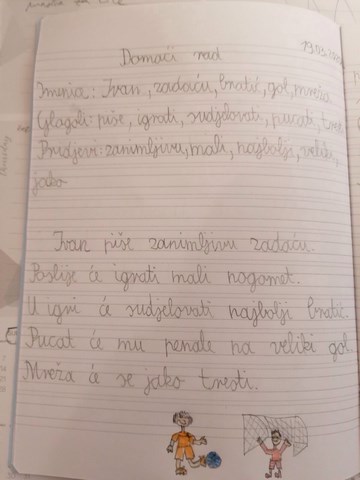 19.03.
Domaći rad
Imenia: Ivan, zadaću, bratić, gol, mreža
Glagoli: piše, igrati, sudjelovati, pucati, tresti
Pridjevi: zanimljivu, mali, najbolji, veliki,
jako
Ivan piše zanimljivu zadaću.
Poslije će igrati mali nogomet.
U igri će sudjelovati najbolji bratić.
Pucat će mu penale na veliki gol.
Mreža će se jako tresti.